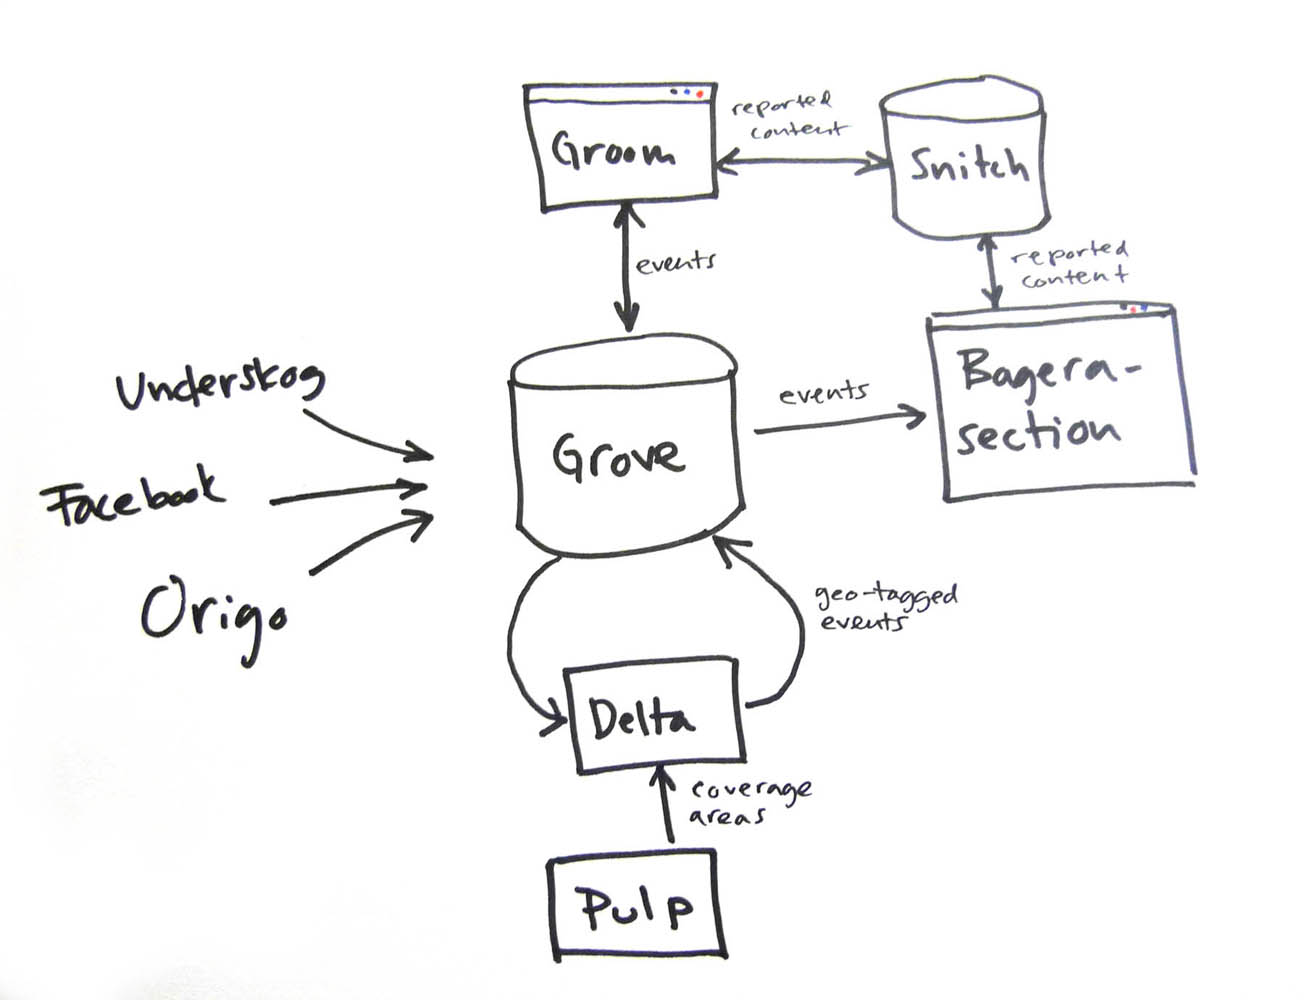 reported
content
Groom
Snitch
events
reported
content
Underskog
Facebook
Origo
Grove
events
Bagera-
section
geo-tagged
events
Delta
coverage
areas
Pulp